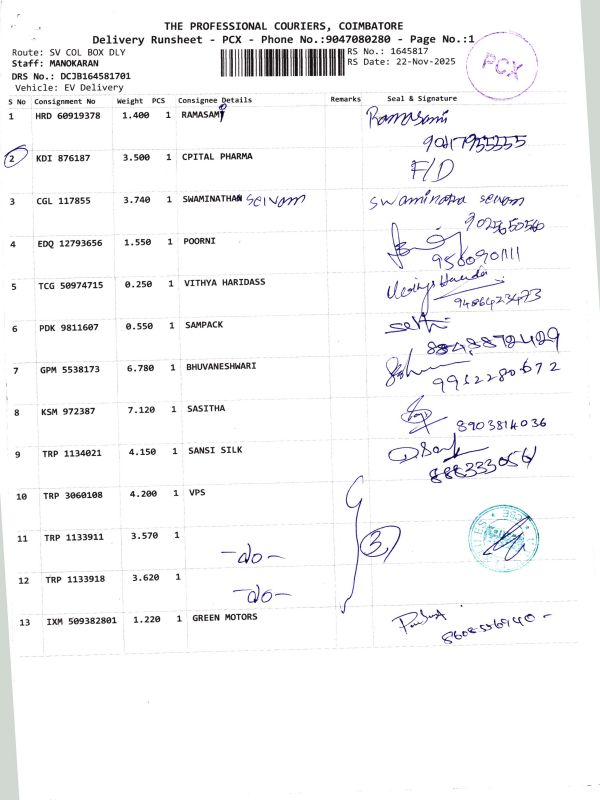 THE PROFESSIONAL COURIERS, COIMBATORE
Delivery Runsheet - PCX - Phone No.:9047080280 - Page No.:1
Route: SV COL BOX DLY RS No.: 1645817
Staff: MANOKARAN RS Date: 22-Nov-2025
DRS No.: DCJB164581701
Vehicle: EV Delivery
PCX
S No Consignment No Weight PCS Consignee Details Remarks Seal & Signature
1 HRD 60919378 1.400 1 RAMASAMY Ramasami
2 KDI 876187 3.500 1 CPITAL PHARMA F/D
3 CGL 117855 3.740 1 SWAMINATHAN selvam Swaminatha selvam
4 EDQ 12793656 1.550 1 POORNI
5 TCG 50974715 0.250 1 VITHYA HARIDASS
9486423473
6 PDK 9811607 0.550 1 SAMPACK
7 GPM 5538173 6.780 1 BHUVANESHWARI
9952280672
8 KSM 972387 7.120 1 SASITHA
8903814036
9 TRP 1134021 4.150 1 SANSI SILK
10 TRP 3060108 4.200 1 VPS
11 TRP 1133911 3.570 1 -do- 3
12 TRP 1133918 3.620 1 -do-
13 IXM 509382801 1.220 1 GREEN MOTORS